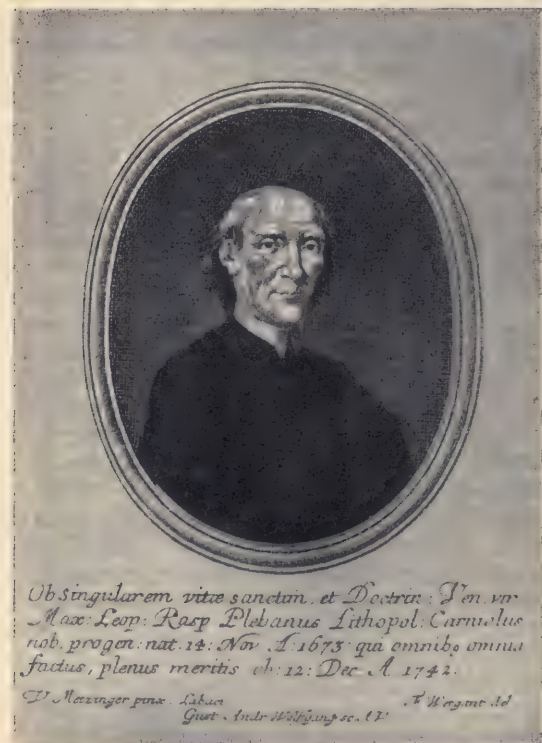 Ob singularem vitæ sanctim. et Doctrin: Ven. vir
Max: Leop: Rasp Plebanus Lithopol: Carniolus
nob. progen: nat. 14: Nov A: 1673 qui omnib9 omnia
factus, plenus meritis ob: 12: Dec A. 1742.
Metzinger pinx. Labaci Wergant del
Gust. Andr Wolfgang sc. A V